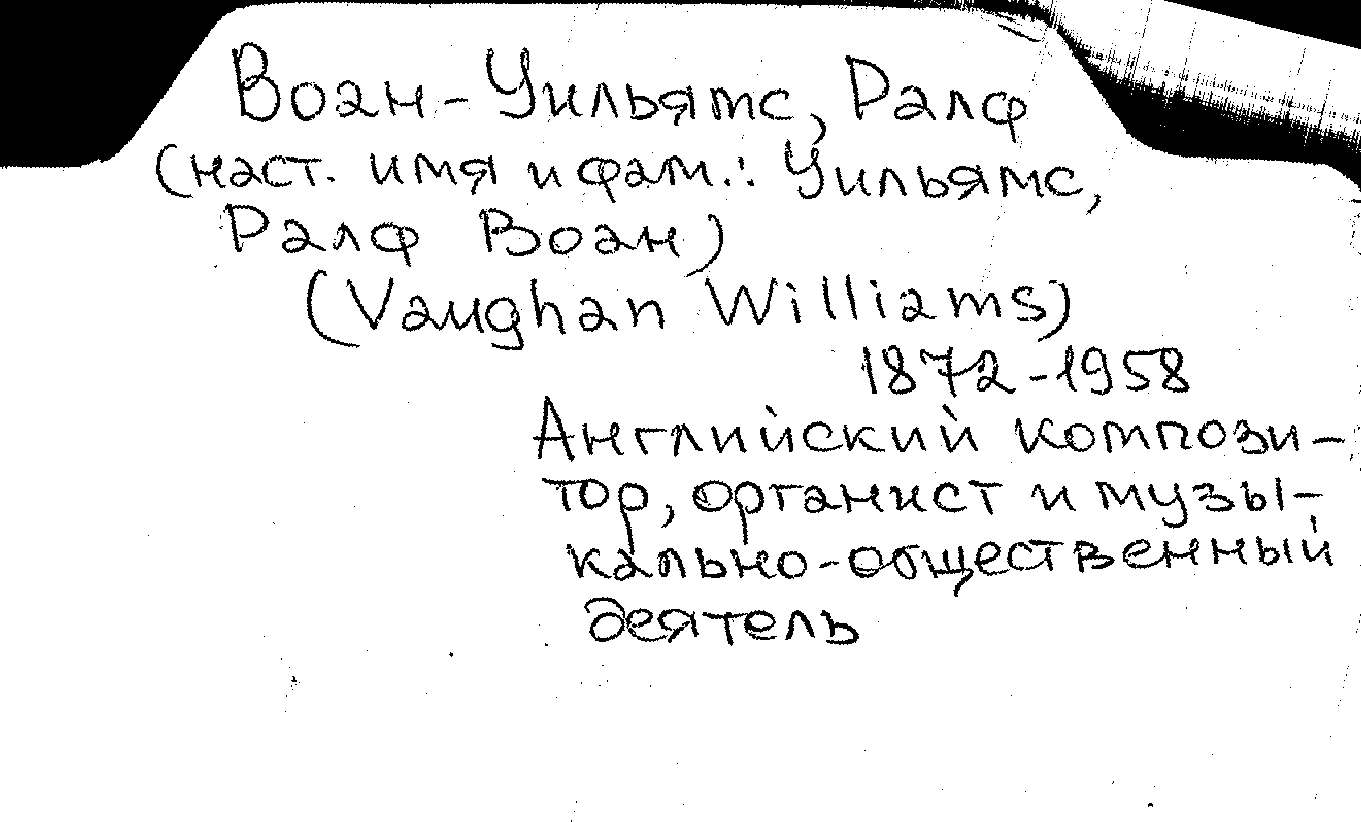 Воан-Уильямс, Ралф
(наст. имя и фам.: Уильямс,
Ралф Воан)
(Vaughan Williams)
1872-1958
Английский компози-
тор, органист и музы-
кально-общественный
деятель